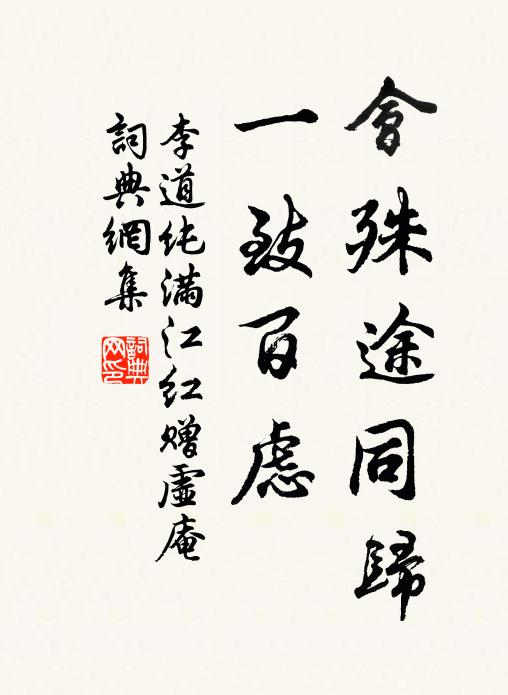 會殊途同歸
一致百慮
李道純滿江紅贈虛庵
詞典網集
詞典網印